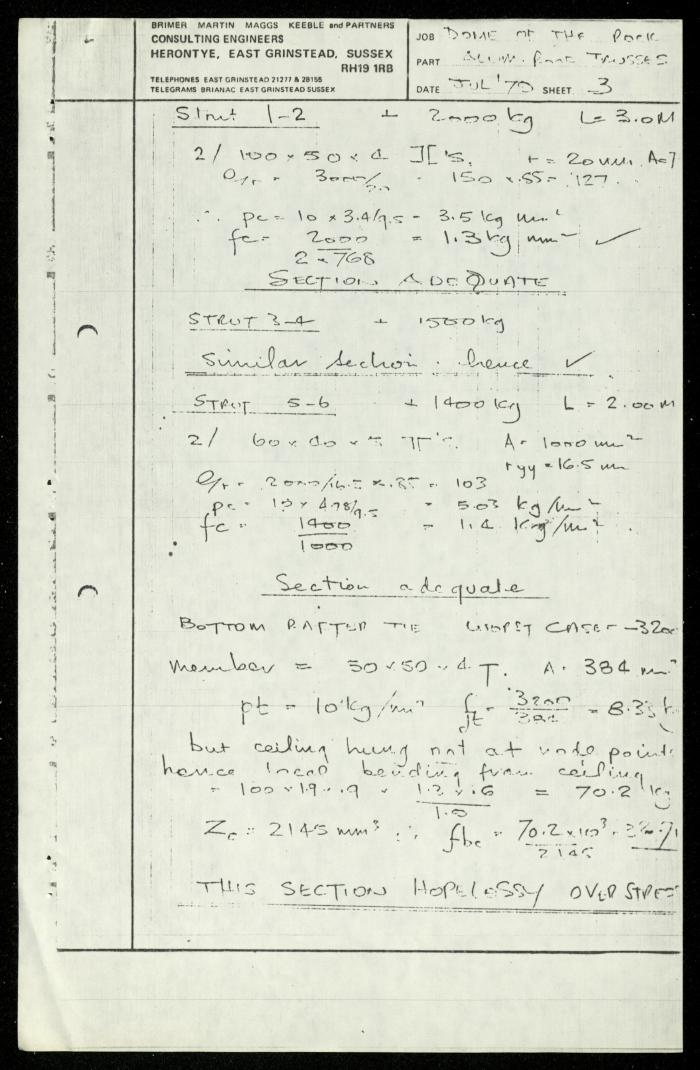 BRIMER MARTIN MAGGS KEEBLE and PARTNERS
CONSULTING ENGINEERS
HERONTYE, EAST GRINSTEAD, SUSSEX
RH19 1RB
TELEPHONES EAST GRINSTEAD 21277 & 28155
TELEGRAMS BRIANAC EAST GRINSTEAD SUSSEX
JOB DOME OF THE ROCK
PART ALUM. ROOF TRUSSES
DATE JUL '70 SHEET 3
Strut 1-2 + 2000kg L = 3.0M
2/ 100 × 50 × 4 ][ 'S. r = 20mm. A=7
l/r = 3000/20 = 150 × .85 = 127.
∴ pc = 10 × 3.4/9.5 = 3.5 kg mm²
fc = 2000 / 2 × 768 = 1.3 kg mm² ✓
SECTION ADEQUATE
STRUT 3-4 + 1500kg
Similar section. hence ✓
STRUT 5-6 + 1400kg L = 2.00M
2/ 60 × 40 × 5 A = 1000 mm²
ryy = 16.5 mm
l/r = 2000/16.5 × .85 = 103
pc = 10 × 4.78/9.5 = 5.03 kg/mm²
fc = 1400 / 1000 = 1.4 kg/mm².
Section adequate
BOTTOM RAFTER TIE WORST CASE = -3200
member = 50 × 50 × 4 T. A = 384 mm²
pt = 10 kg/mm² ft = 3200 / 384 = 8.33 k
but ceiling hung not at node points
hence local bending from ceiling
= 100 × 1.9 × .9 × 1.2 × .6 / 1.8 = 70.2 kg
Zc = 2145 mm³ ∴ fbc = 70.2 × 10³ / 2145
THIS SECTION HOPELESSY OVERSTRES